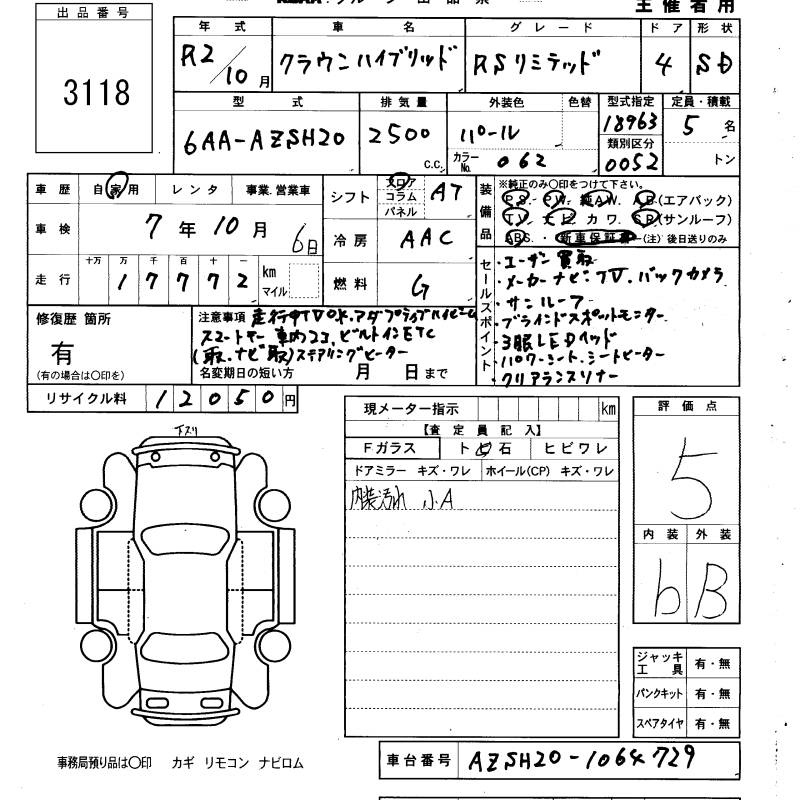 出品番号
3118
主催者用
年式 車名 グレード ドア 形状
R2/10月 クラウンハイブリッド RSリミテッド 4 SD
型式 排気量 外装色 色替 型式指定 定員・積載
6AA-AZSH20 2500 c.c. パール 18963 5名
カラーNo. 062 類別区分 0052 トン
車歴 自家用 レンタ 事業.営業車
車検 7年10月6日
走行 十万 万 千 百 十 一
17772 km マイル
シフト フロア コラム パネル AT
冷房 AAC
燃料 G
装備品 ※純正のみ〇印をつけて下さい。
P.S. P.W. 純AW. A.B(エアバック)
T.V. ナビ カワ. S.R(サンルーフ)
ABS. 新車保証書 (注)後日送りのみ
セールスポイント
・ユーザー買取
・メーカーナビ・TV.バックカメラ
・サンルーフ
・ブラインドスポットモニター
・3眼LEDヘッド
・パワーシート.シートヒーター
・クリアランスソナー
修復歴 箇所
有
(有の場合は〇印を)
注意事項 走行中TVOK.アダプティブハイビーム
スマートキー 車内2コ.ビルトインETC
(取.ナビ取)ステアリングヒーター
名変期日の短い方 月 日まで
リサイクル料 12050円
下スリ
現メーター指示 km
【査定員記入】
Fガラス ト ビ 石 ヒビワレ
ドアミラー キズ・ワレ ホイール(CP) キズ・ワレ
内装汚れ 小A
評価点
5
内装 外装
b B
ジャッキ工具 有・無
パンクキット 有・無
スペアタイヤ 有・無
事務局預り品は〇印 カギ リモコン ナビロム
車台番号 AZSH20-1064729